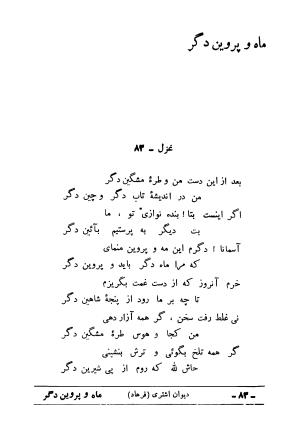 ماه و پروین دگر
غزل - ۸۳
بعد از این دست من و طرهٔ مشگین دگر
من در اندیشهٔ تاب دگر و چین دگر
اگر اینست بتا! بنده نوازی تو ، ما
بت دیگر به پرستیم بآئین دگر
آسمانا! دگرم این مه و پروین منمای
که مرا ماه دگر باید و پروین دگر
خرم آنروز که از دست غمت بگریزم
تا چه بر ما رود از پنجهٔ شاهین دگر
نی غلط رفت سخن ، گر همه آزار دهی
من کجا و هوس طرهٔ مشگین دگر
گر همه تلخ بگوئی و ترش بنشینی
حاش لله که روم از پی شیرین دگر
ماه و پروین دگر دیوان اشتری (فرهاد) - ۸۳ -